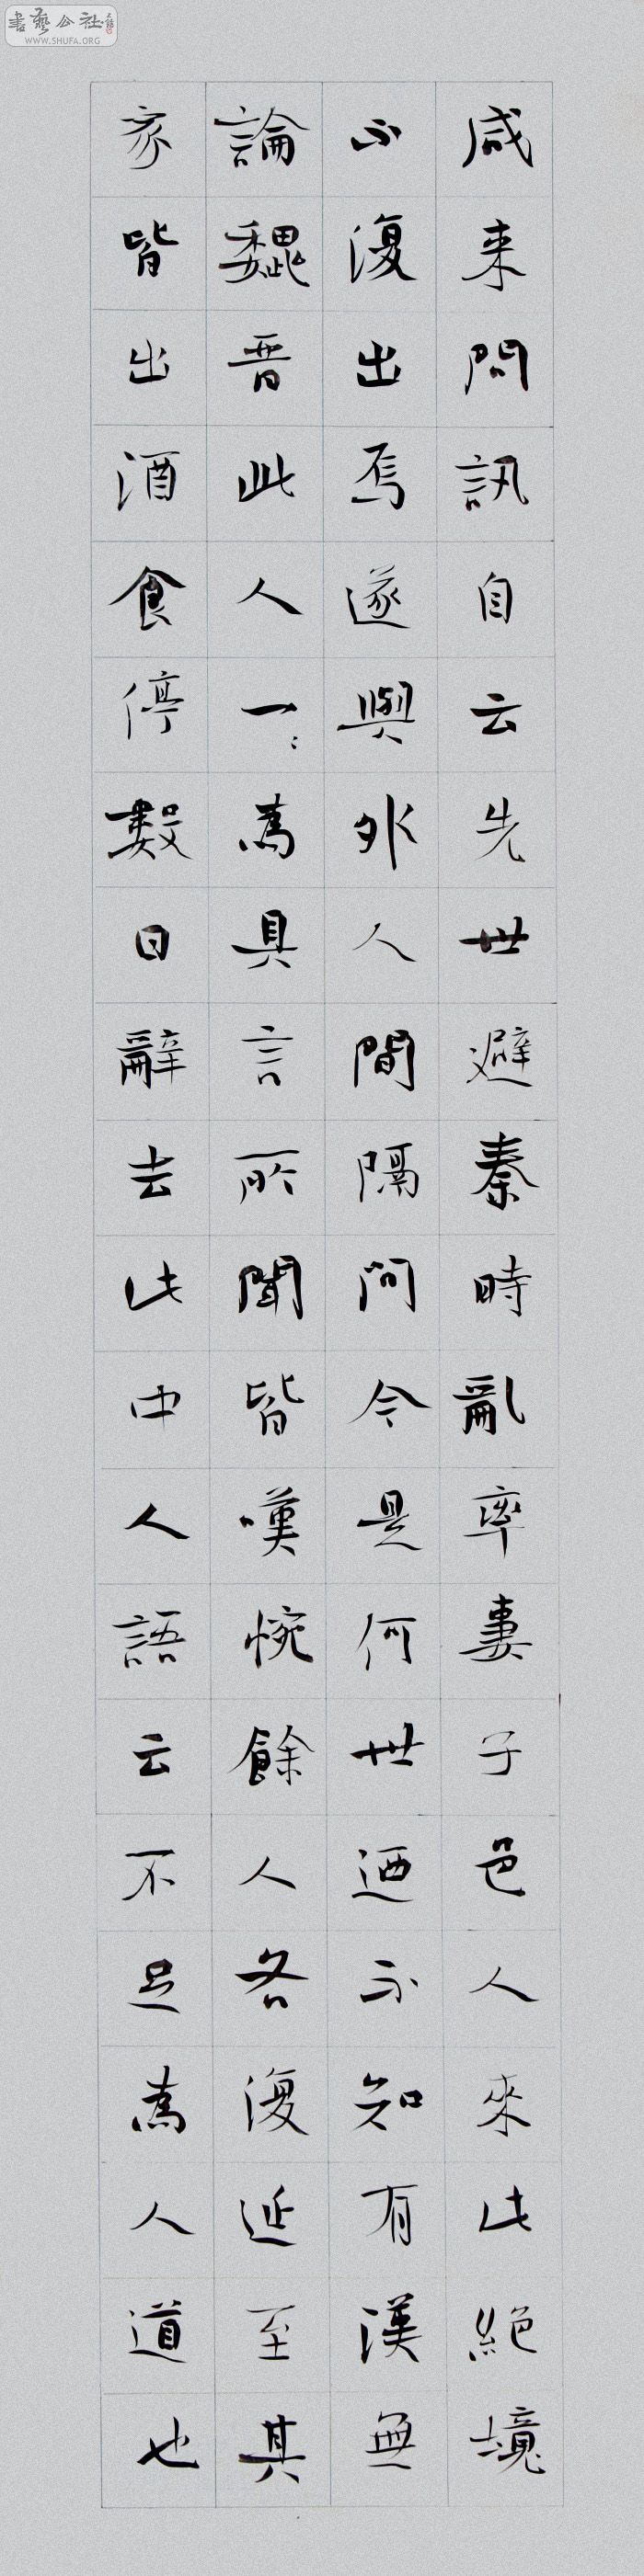 書藝公社
WWW.SHUFA.ORG
咸来問訊自云先世避秦時亂率妻子邑人來此絕境
不復出焉遂與外人間隔問今是何世迺不知有漢無
論魏晋此人一〻為具言所聞皆嘆惋餘人各復延至其
家皆出酒食停數日辭去此中人語云不足為人道也